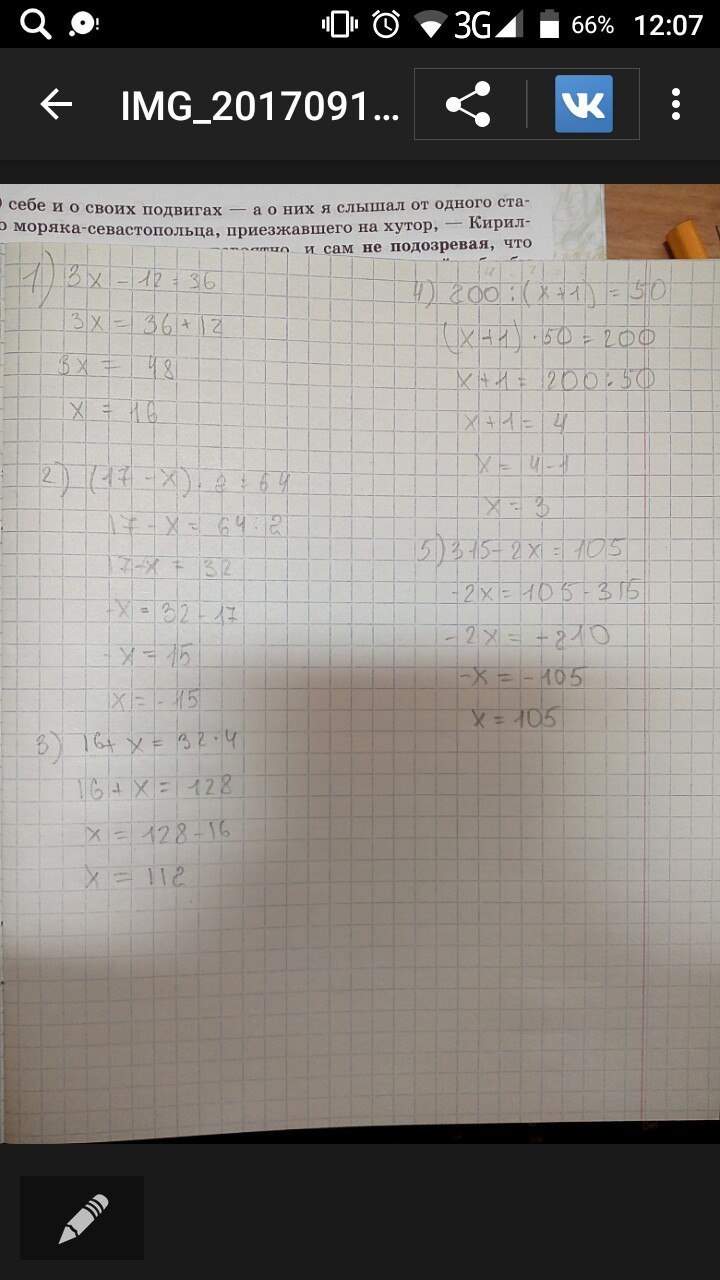 3G 66% 12:07
IMG_2017091...
себе и о своих подвигах — а о них я слышал от одного ста-
моряка-севастопольца, приезжавшего на хутор, — Кирил-
и сам не подозревая, что
1) 3x - 12 = 36
3x = 36 + 12
3x = 48
x = 16
2) (17 - x) · 2 = 64
17 - x = 64 : 2
17 - x = 32
-x = 32 - 17
-x = 15
x = -15
3) 16 + x = 32 · 4
16 + x = 128
x = 128 - 16
x = 112
4) 200 : (x+1) = 50
(x+1) · 50 = 200
x+1 = 200 : 50
x+1 = 4
x = 4-1
x = 3
5) 315 - 2x = 105
-2x = 105 - 315
-2x = -210
-x = -105
x = 105